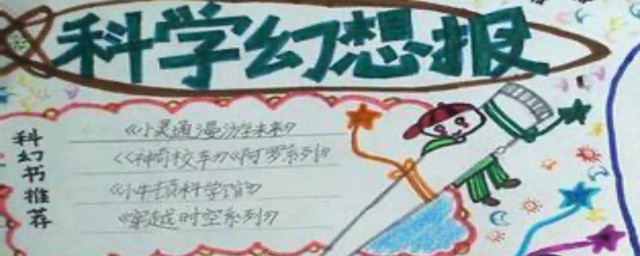 科学幻想报
科幻书推荐
《小灵通漫游未来》
《神奇校车》《阿罗系列》
《小牛顿科学馆》
《穿越时空系列》